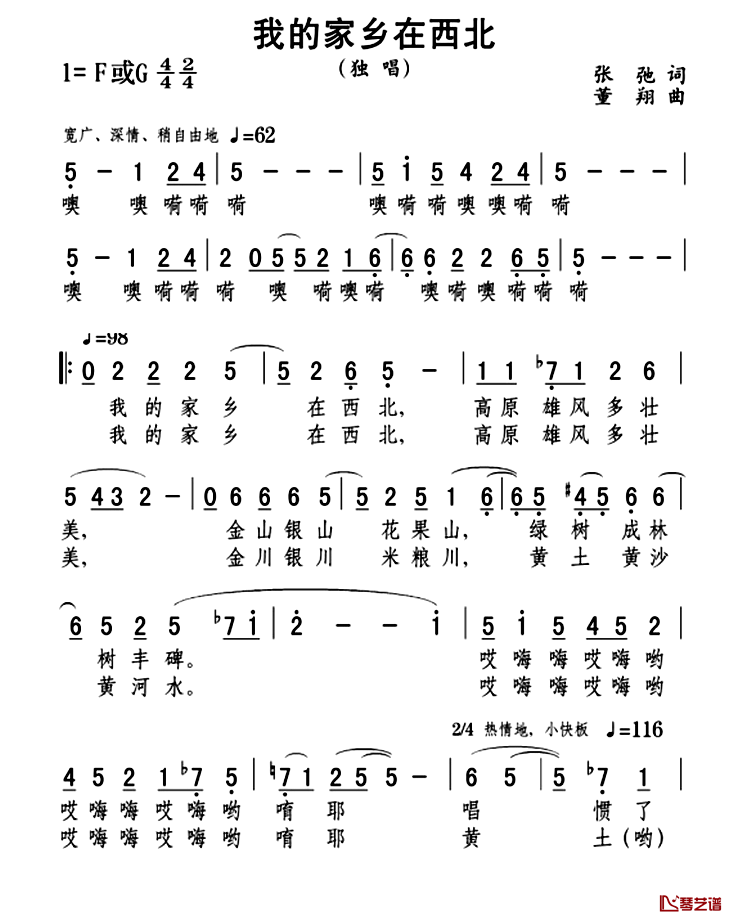 我的家乡在西北
（独 唱）
1= F或G 4/4 2/4
张 弛 词
董 翔 曲
宽广、深情、稍自由地 ♩=62
5 – 1 2 4 | 5 – – – | 5 1 5 4 2 4 | 5 – – – |
噢 噢 嗬嗬 嗬 噢嗬嗬噢噢嗬 嗬
5 – 1 2 4 | 2 0 5 5 2 1 6 | 6 6 2 2 6 5 | 5 – – – |
噢 噢 嗬嗬 嗬 噢 嗬噢嗬 噢嗬噢嗬嗬 嗬
♩=98
0 2 2 2 5 | 5 2 6 5 – | 1 1 ♭7 1 2 6 |
我 的 家 乡 在 西 北, 高 原 雄 风 多 壮
我 的 家 乡 在 西 北, 高 原 雄 风 多 壮
5 4 3 2 – | 0 6 6 6 5 | 5 2 5 1 6 | 6 5 #4 5 6 6 |
美, 金 山 银 山 花 果 山, 绿 树 成 林
美, 金 川 银 川 米 粮 川, 黄 土 黄 沙
6 5 2 5 ♭7 1 | 2 – – 1 | 5 1 5 4 5 2 |
树 丰 碑。 哎 嗨 嗨 哎 嗨 哟
黄 河 水。 哎 嗨 嗨 哎 嗨 哟
2/4 热情地, 小快板 ♩=116
4 5 2 1 ♭7 5 | ♮7 1 2 5 5 – | 6 5 5 | 5 ♭7 1 |
哎 嗨 嗨 哎 嗨 哟 唷 耶 唱 惯 了
哎 嗨 嗨 哎 嗨 哟 唷 耶 黄 土 (哟)
琴艺谱